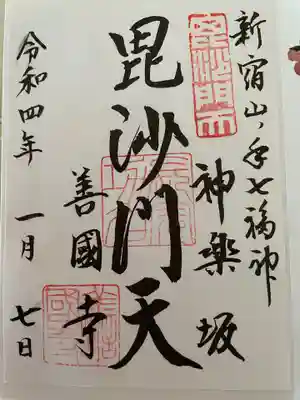 新宿山ノ手七福神
毘沙門天
神楽坂
毘沙門天
善國寺
令和四年 一月 七日